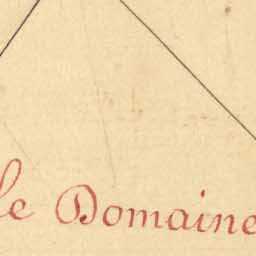 le Domaine